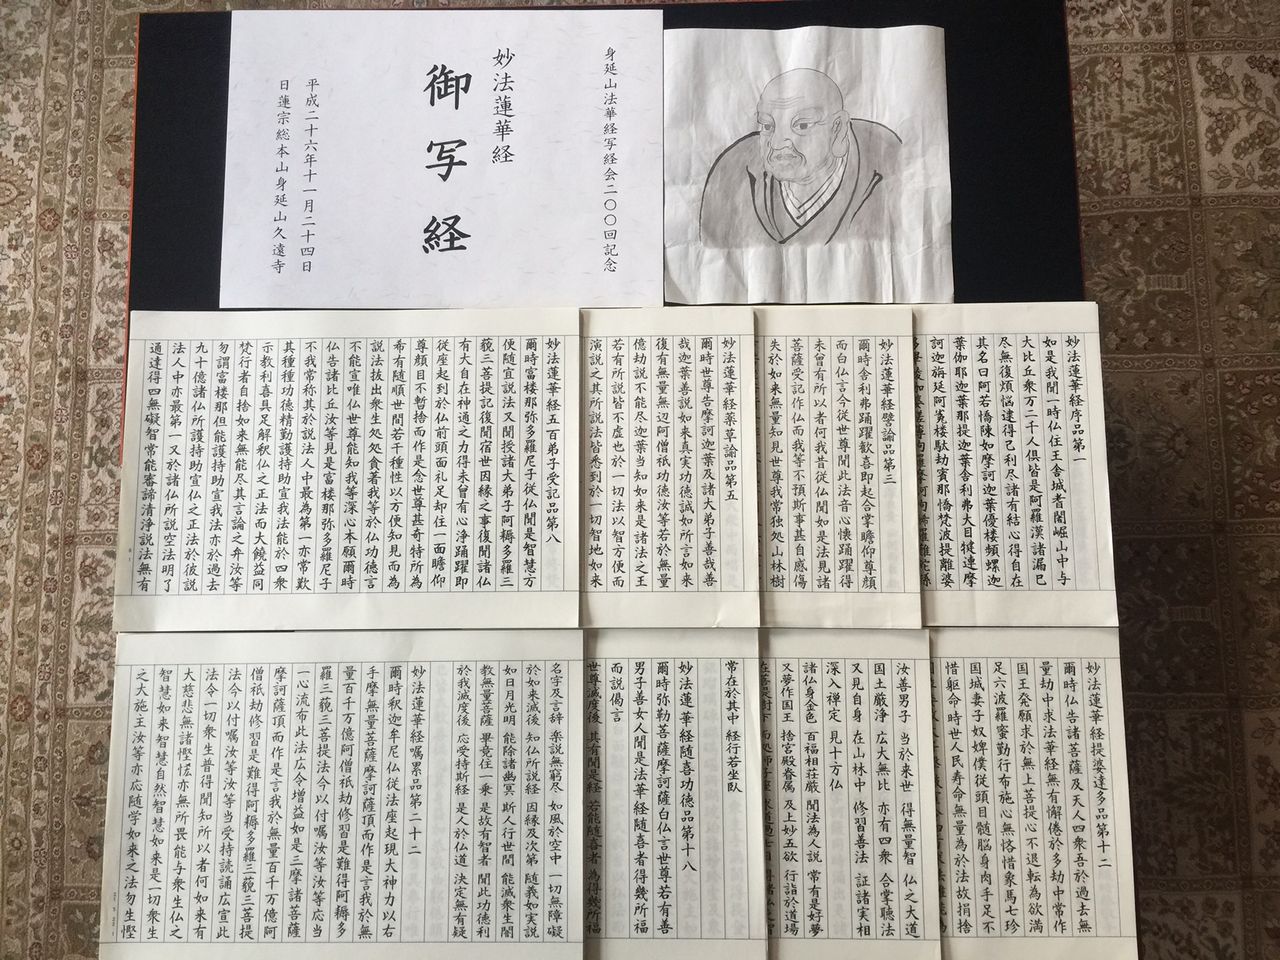 身延山法華経写経会二〇〇回記念
妙法蓮華経
御写経
平成二十六年十一月二十四日
日蓮宗総本山身延山久遠寺
妙法蓮華経序品第一
如是我聞一時仏住王舎城耆闍崛山中与
大比丘衆万二千人俱皆是阿羅漢諸漏已
尽無復煩悩逮得己利尽諸有結心得自在
其名曰阿若憍陳如摩訶迦葉優楼頻螺迦
葉伽耶迦葉那提迦葉舎利弗大目犍連摩
訶迦旃延阿㝹楼駄劫賓那憍梵波提離婆
妙法蓮華経譬諭品第三
爾時舎利弗踊躍歓喜即起合掌瞻仰尊顔
而白仏言今従世尊聞此法音心懐踊躍得
未曾有所以者何我昔従仏聞如是法見諸
菩薩受記作仏而我等不預斯事甚自感傷
失於如来無量知見世尊我常独処山林樹
妙法蓮華経薬草諭品第五
爾時世尊告摩訶迦葉及諸大弟子善哉善
哉迦葉善説如来真実功徳誠如所言如来
復有無量無辺阿僧祇功徳汝等若於無量
億劫説不能尽迦葉当知如来是諸法之王
若有所説皆不虚也於一切法以智方便而
演説之其所説法皆悉到於一切智地如来
妙法蓮華経五百弟子受記品第八
爾時富楼那弥多羅尼子従仏聞是智慧方
便随宜説法又聞授諸大弟子阿耨多羅三
藐三菩提記復聞宿世因縁之事復聞諸仏
有大自在神通之力得未曾有心浄踊躍即
従座起到於仏前頭面礼足却住一面瞻仰
尊顔目不暫捨而作是念世尊甚奇特所為
希有随順世間若干種性以方便知見而為
説法抜出衆生処処貪着我等於仏功徳言
不能宣唯仏世尊能知我等深心本願爾時
仏告諸比丘汝等見是富楼那弥多羅尼子
不我常称其於説法人中最為第一亦常歎
其種種功徳精勤護持助宣我法能於四衆
示教利喜具足解釈仏之正法而大饒益同
梵行者自捨如来無能尽其言論之弁汝等
勿謂富楼那但能護持助宣我法亦於過去
九十億諸仏所護持助宣仏之正法於彼説
法人中亦最第一又於諸仏所説空法明了
通達得四無礙智常能審諦清浄説法無有
妙法蓮華経提婆達多品第十二
爾時仏告諸菩薩及天人四衆吾於過去無
量劫中求法華経無有懈倦於多劫中常作
国王発願求於無上菩提心不退転為欲満
足六波羅蜜勤行布施心無悋惜象馬七珍
国城妻子奴婢僕従頭目髄脳身肉手足不
惜軀命時世人民寿命無量為於法故捐捨
汝善男子 当於来世 得無量智 仏之大道
国土厳浄 広大無比 亦有四衆 合掌聴法
又見自身 在山林中 修習善法 証諸実相
深入禅定 見十方仏
諸仏身金色 百福相荘厳 聞法為人説 常有是好夢
又夢作国王 捨宮殿眷属 及上妙五欲 行詣於道場
常在於其中 経行若坐臥
妙法蓮華経随喜功徳品第十八
爾時弥勒菩薩摩訶薩白仏言世尊若有善
男子善女人聞是法華経随喜者得幾所福
而説偈言
世尊滅度後 其有聞是経 若能随喜者 為得幾所福
名字及言辞 楽説無窮尽 如風於空中 一切無障礙
於如来滅後 知仏所説経 因縁及次第 随義如実説
如日月光明 能除諸幽冥 斯人行世間 能滅衆生闇
教無量菩薩 畢竟住一乗 是故有智者 聞此功徳利
於我滅度後 応受持斯経 是人於仏道 決定無有疑
妙法蓮華経嘱累品第二十二
爾時釈迦牟尼仏従法座起現大神力以右
手摩無量菩薩摩訶薩頂而作是言我於無
量百千万億阿僧祇劫修習是難得阿耨多
羅三藐三菩提法今以付嘱汝等汝等応当
一心流布此法広令増益如是三摩諸菩薩
摩訶薩頂而作是言我於無量百千万億阿
僧祇劫修習是難得阿耨多羅三藐三菩提
法今以付嘱汝等汝等当受持読誦広宣此
法令一切衆生普得聞知所以者何如来有
大慈悲無諸慳悋亦無所畏能与衆生仏之
智慧如来智慧自然智慧如来是一切衆生
之大施主汝等亦応随学如来之法勿生慳